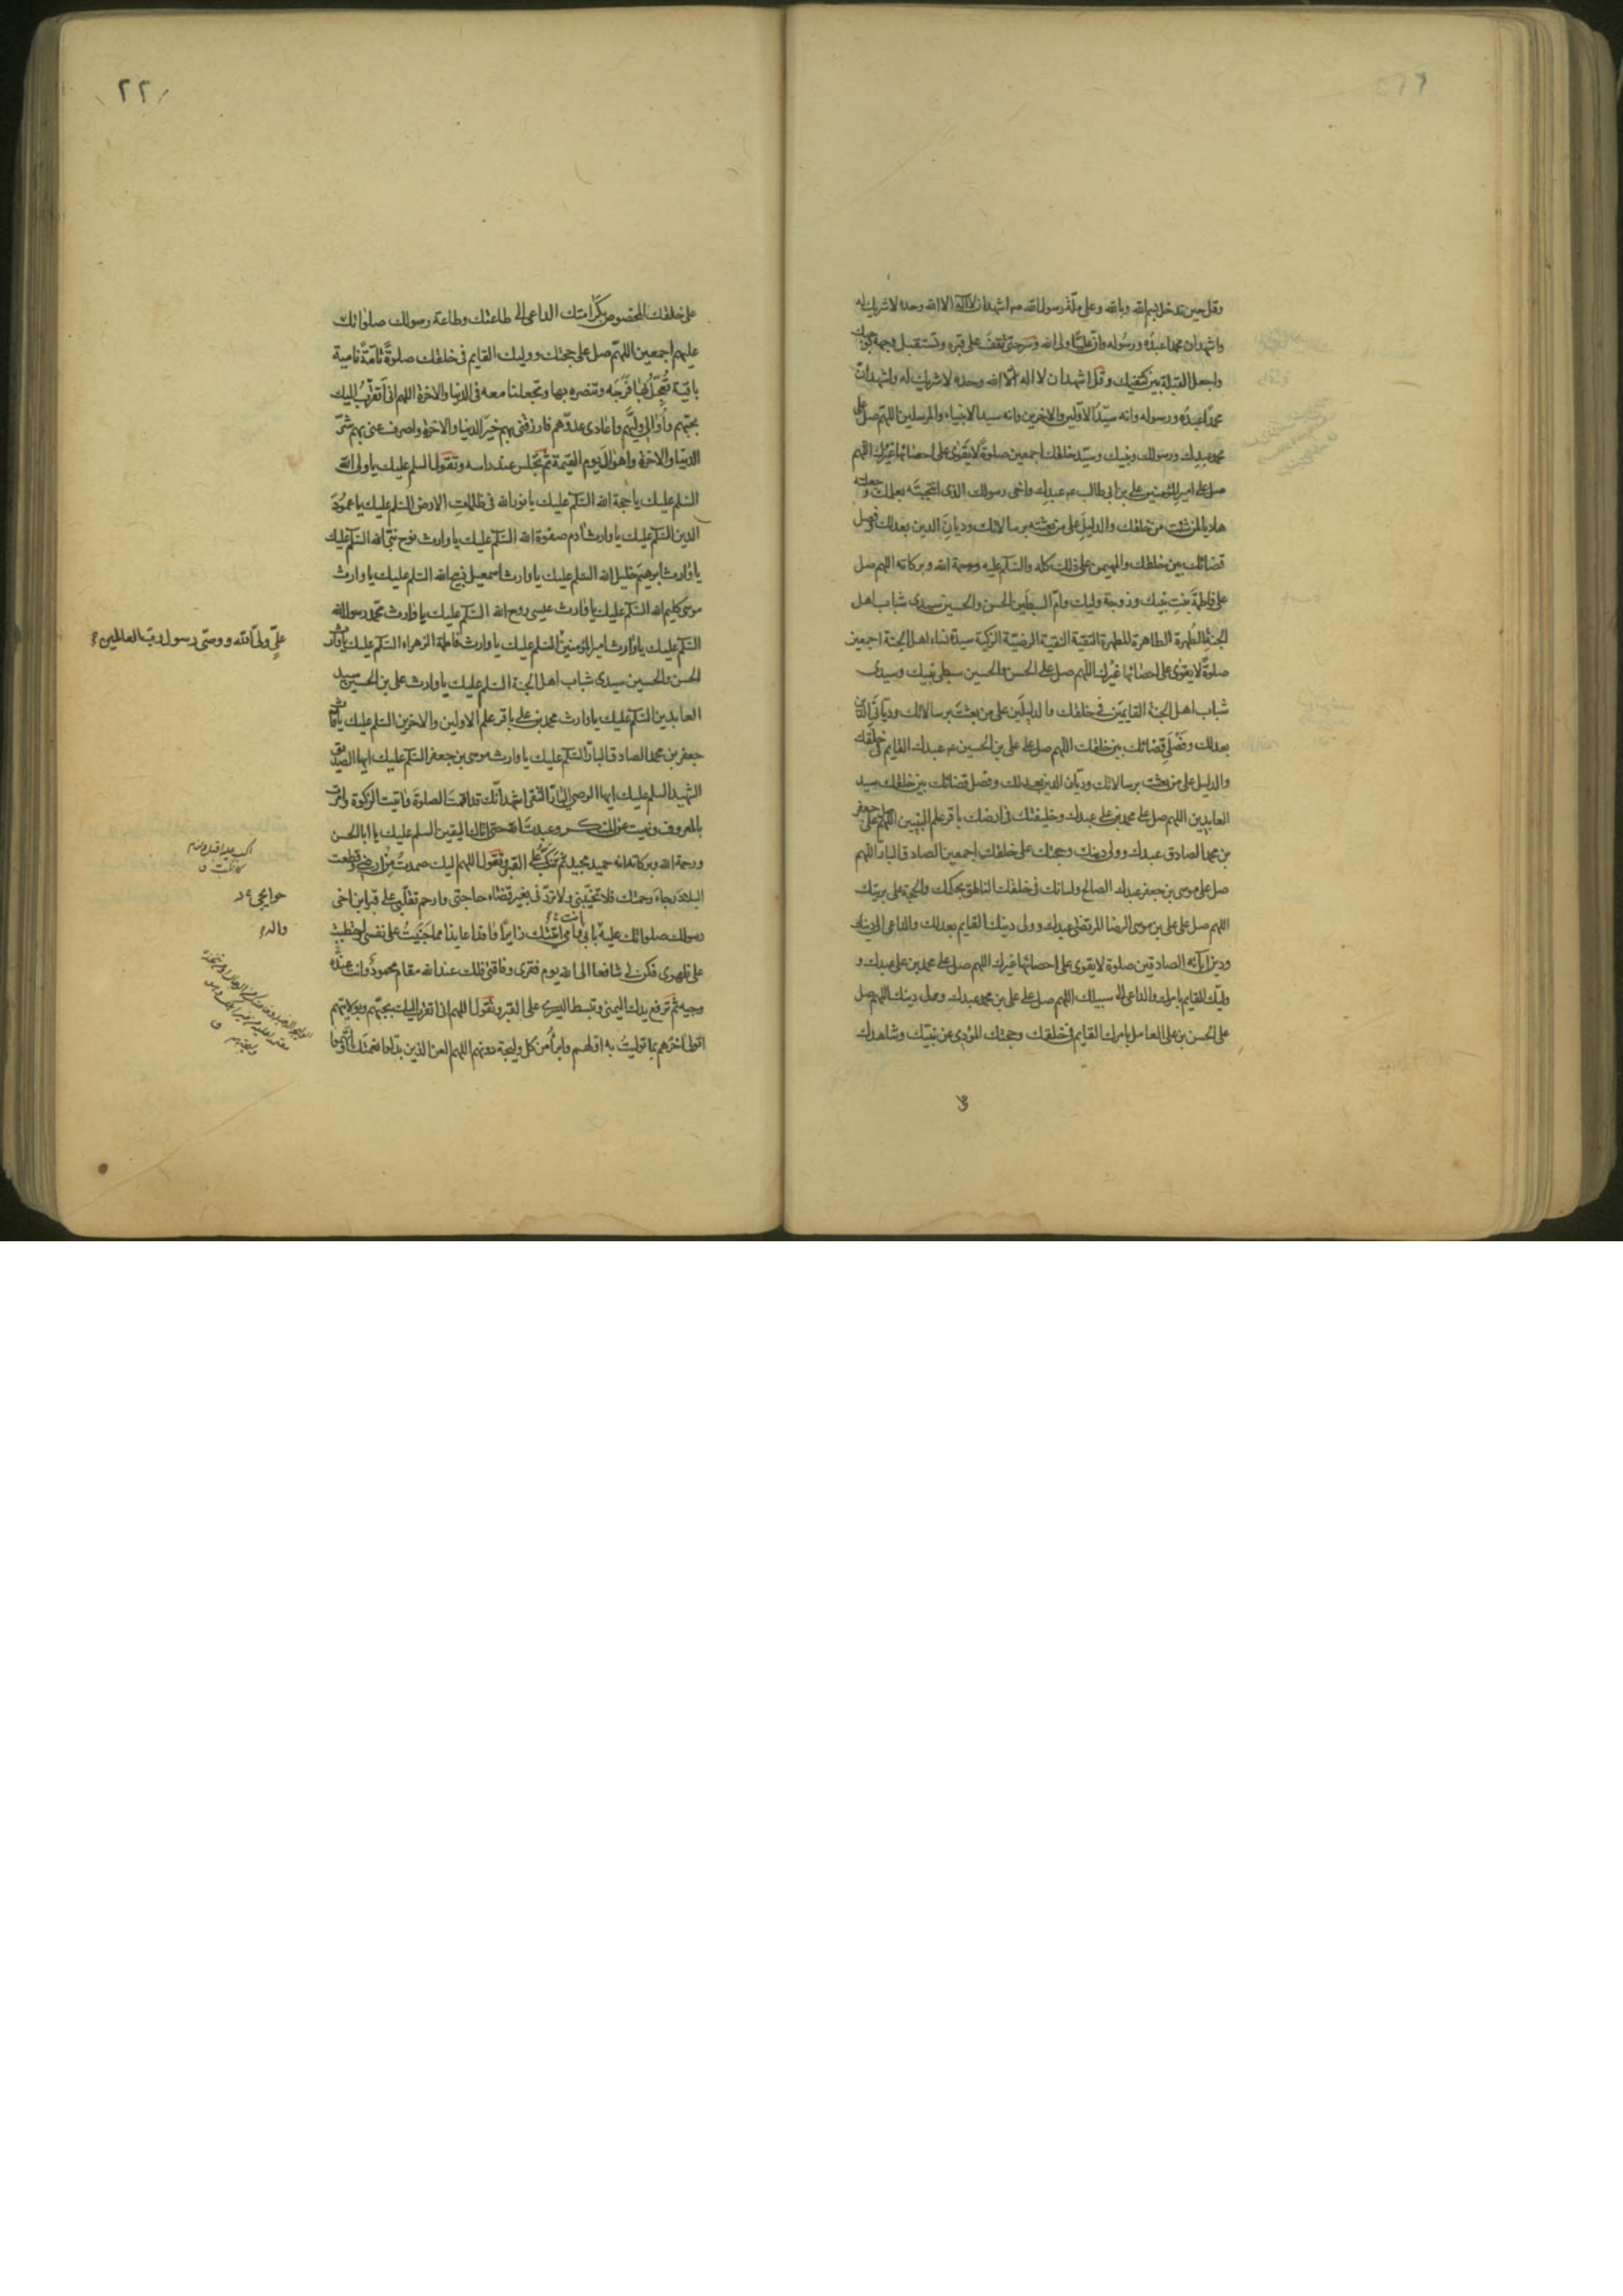 وقل حين تدخل بسم الله وبالله وعلى ملة رسول الله صم اشهد ان لا اله الا الله وحده لا شريك له
واشهد ان محمدا عبده ورسوله وان عليا ولى الله وسر حتى تقف على قبره وتستقبل وجهه بوجهك
واجعل القبلة بين كتفيك وقل اشهد ان لا اله الا الله وحده لا شريك له واشهد ان
محمدا عبده ورسوله وانه سيد الاولين والاخرين وانه سيد الانبياء والمرسلين اللهم صل على
محمد عبدك ورسولك ونبيك وسيد خلقك اجمعين صلوة لا يقوى على احصائها غيرك اللهم
صل على امير المؤمنين على بن ابى طالب عم عبدك واخى رسولك الذى انتجبته بعلمك وجعلته
هاديا لمن شئت من خلقك والدليل على من بعثته برسالاتك وديان الدين بعدلك وفصل
قضائك بين خلقك والمهيمن على ذلك كله والسلم عليه ورحمة الله وبركاته اللهم صل
على فاطمة بنت نبيك وزوجة وليك وام السبطين الحسن والحسين سيدى شباب اهل
الجنة الطهرة الطاهرة المطهرة التقية النقية الرضية الزكية سيدة نساء اهل الجنة اجمعين
صلوة لا يقوى على احصائها غيرك اللهم صل على الحسن والحسين سبطى نبيك وسيدى
شباب اهل الجنة القايمين فى خلقك والدليلين على من بعثت برسالاتك وديانى الدين
بعدلك وفصلى قضائك بين خلقك اللهم صل على على بن الحسين عم عبدك القايم فى خلقك
والدليل على من بعثت برسالاتك وديان الدين بعدلك وفصل قضائك بين خلقك سيد
العابدين اللهم صل على محمد بن على عبدك وخليفتك فى ارضك باقر علم النبيين اللهم صل على جعفر
بن محمد الصادق عبدك وولى دينك وحجتك على خلقك اجمعين الصادق البار اللهم
صل على موسى بن جعفر عبدك الصالح ولسانك فى خلقك الناطق بحكمك والحجة على بريتك
اللهم صل على على بن موسى الرضا المرتضى عبدك وولى دينك القايم بعدلك والداعى الى دينك
ودين آبائه الصادقين صلوة لا يقوى على احصائها غيرك اللهم صل على محمد بن على عبدك و
وليك القايم بامرك والداعى الى سبيلك اللهم صل على على بن محمد عبدك وولى دينك اللهم صل
على الحسن بن على العامل بامرك القايم فى خلقك وحجتك المؤدى عن نبيك وشاهدك
٢٢
على خلقك المخصوص بكرامتك الداعى الى طاعتك وطاعة رسولك صلواتك
عليهم اجمعين اللهم صل على حجتك ووليك القايم فى خلقك صلوة تامة نامية
باقية تعجل بها فرجه وتنصره بها وتجعلنا معه فى الدنيا والاخرة اللهم انى اتقرب اليك
بحبهم واوالى وليهم واعادى عدوهم فارزقنى بهم خير الدنيا والاخرة واصرف عنى بهم شر
الدنيا والاخرة واهوال يوم القيمة ثم تجلس عند راسه وتقول السلم عليك يا ولى الله
السلم عليك يا حجة الله السلم عليك يا نور الله فى ظلمات الارض السلم عليك يا عمود
الدين السلم عليك يا وارث ادم صفوة الله السلم عليك يا وارث نوح نبى الله السلم عليك
يا وارث ابرهيم خليل الله السلم عليك يا وارث اسمعيل ذبيح الله السلم عليك يا وارث
موسى كليم الله السلم عليك يا وارث عيسى روح الله السلم عليك يا وارث محمد رسول الله
السلم عليك يا وارث امير المؤمنين السلم عليك يا وارث فاطمة الزهراء السلم عليك يا وارث
على ولى الله ووصى رسول رب العالمين
الحسن والحسين سيدى شباب اهل الجنة السلم عليك يا وارث على بن الحسين سيد
العابدين السلم عليك يا وارث محمد بن على باقر علم الاولين والاخرين السلم عليك يا وارث
جعفر بن محمد الصادق البار السلم عليك يا وارث موسى بن جعفر السلم عليك ايها الصديق
الشهيد السلم عليك ايها الوصى البار التقى اشهد انك قد اقمت الصلوة واتيت الزكوة وامرت
بالمعروف ونهيت عن المنكر وعبدت الله حتى اتاك اليقين السلم عليك يا ابا الحسن
ورحمة الله وبركاته انه حميد مجيد ثم تنكب على القبر وتقول اللهم اليك صمدت من ارضى وقطعت
البلاد رجاء رحمتك فلا تخيبنى ولا تردنى بغير قضاء حاجتى وارحم تقلبى على قبر ابن اخى
حوايجى
رسولك صلواتك عليه بابى انت وامى اتيتك زايرا وافدا عايذا مما جنيت على نفسى واحتطبت
واله
على ظهرى فكن لى شافعا الى الله يوم فقرى وفاقتى فلك عند الله مقام محمود وانت عنده
وجيه ثم ترفع يدك اليمنى وتبسط اليسرى على القبر وتقول اللهم انى اتقرب اليك بحبهم وبولايتهم
اتولى اخرهم بما توليت به اولهم وابرأ من كل وليجة دونهم اللهم العن الذين بدلوا نعمتك واتهموا